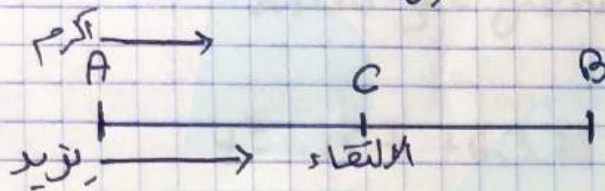 أكرم
A C B
يزيد الالتقاء